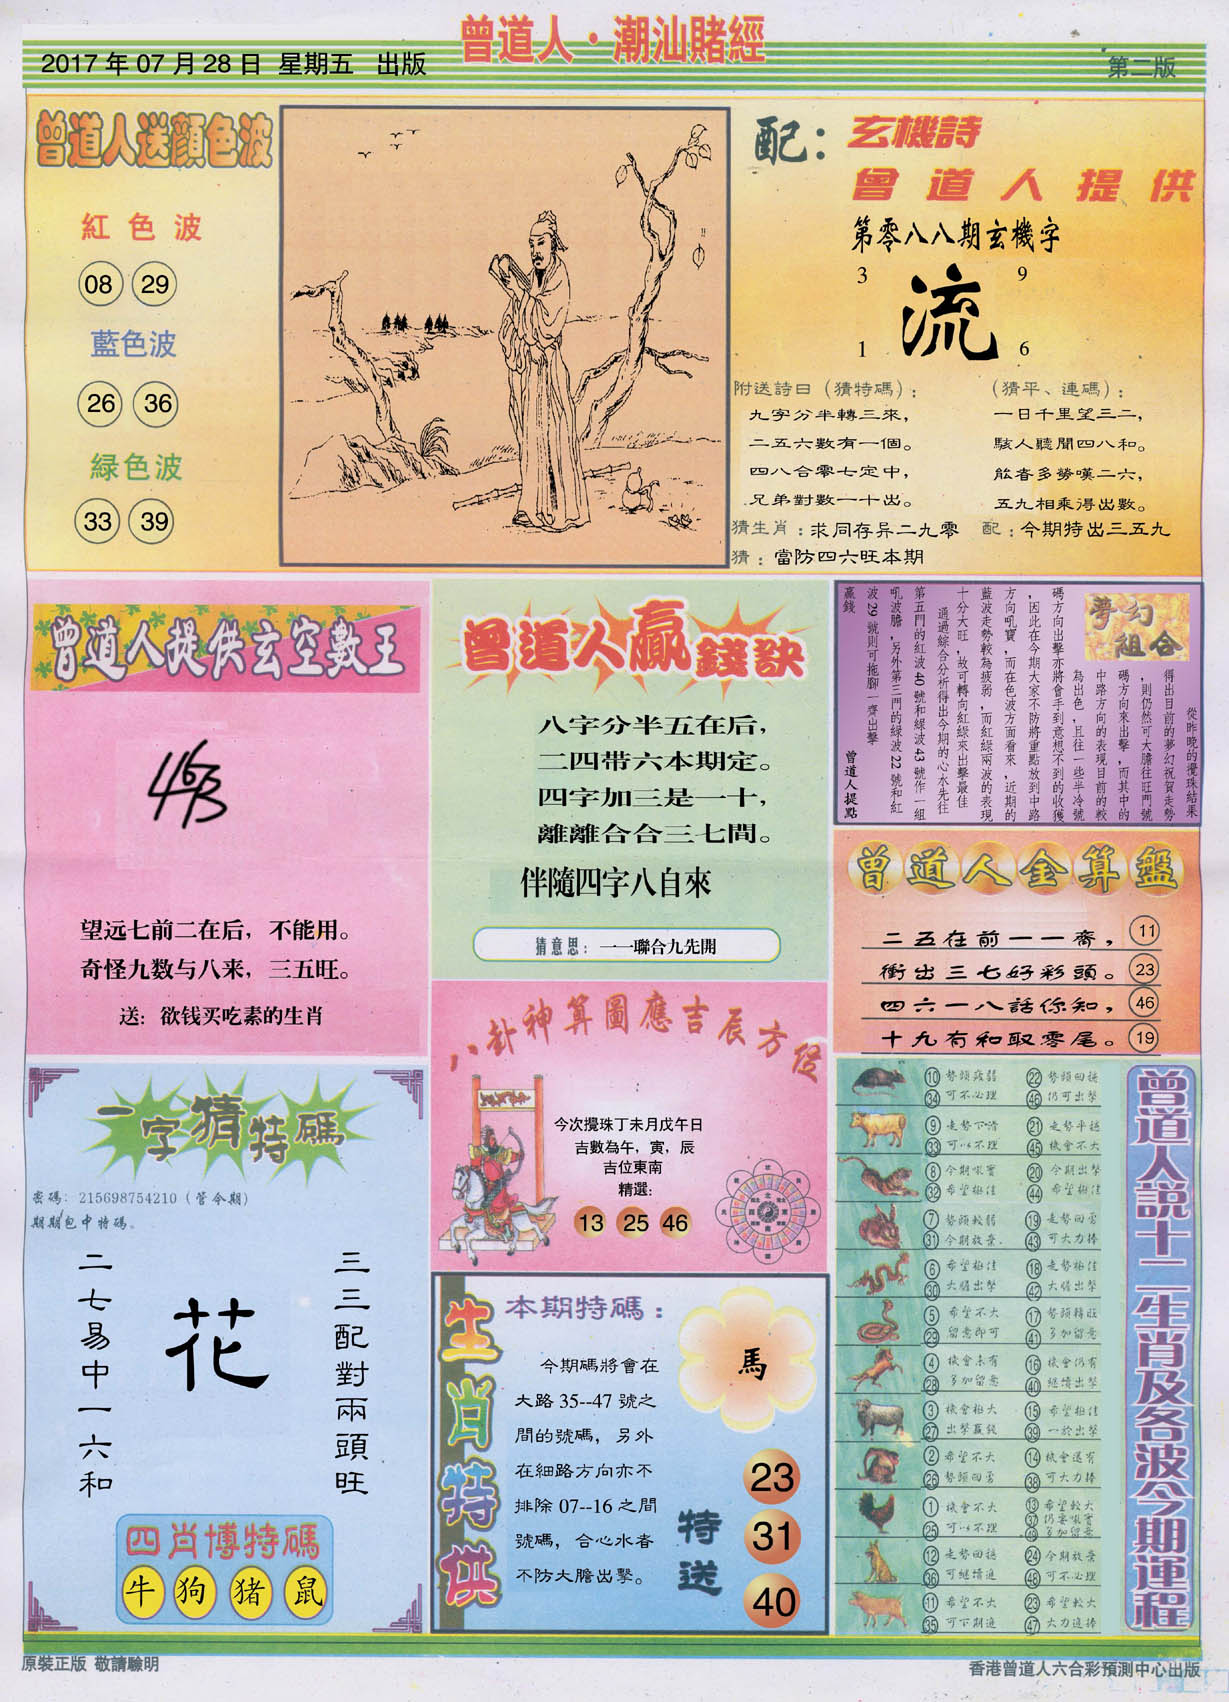 曾道人·潮汕賭經
2017 年 07 月 28 日 星期五 出版
第二版
曾道人送顏色波
紅色波
08 29
藍色波
26 36
緑色波
33 39
配：玄機詩
曾道人提供
第零八八期玄機字
3 9
流
1 6
附送詩日（猜特碼）：
九字分半轉三來，
二五六數有一個。
四八合零七定中，
兄弟對數一十出。
（猜平、連碼）：
一日千里望三二，
駭人聽聞四八和。
能者多勞嘆二六，
五九相乘得出數。
猜生肖：求同存异二九零
配：今期特出三五九
猜：當防四六旺本期
曾道人提供玄空數王
463
望远七前二在后，不能用。
奇怪九数与八来，三五旺。
送：欲钱买吃素的生肖
曾道人贏錢訣
八字分半五在后，
二四带六本期定。
四字加三是一十，
離離合合三七間。
伴隨四字八自來
猜意思：一一聯合九先開
夢幻
組合
從昨晚的攪珠結果
得出目前的夢幻祝賀走勢
，則仍然可大膽往旺門號
碼方向來出擊，而其中的
中路方向的表現目前的較
為出色，且往一些半冷號
碼方向出擊亦將會手到意想不到的收獲
，因此在今期大家不防將重點放到中路
方向吼寶，而在色波方面看來，近期的
藍波走勢較為疲弱，而紅綠兩波的表現
十分大旺，故可轉向紅綠來出擊最佳
通過綜合分析得出今期的心水先往
第五門的紅波 40 號和綠波 43 號作一組
吼波膽，另外第三門的綠波 22 號和紅
波 29 號則可拖腳一齊出擊
贏錢
曾道人提點
曾道人金算盤
二五在前一一齋， 11
衝出三七好彩頭。 23
四六一八話你知， 46
十九有和取零尾。 19
八卦神算圖應吉辰方位
今次攪珠丁未月戊午日
吉數為午，寅，辰
吉位東南
精選：
13 25 46
一字猜特碼
密碼：215698754210（管令期）
期期包中特碼。
三三配對兩頭旺
花
二七易中一六和
四肖博特碼
牛 狗 猪 鼠
生肖特供
本期特碼：
今期碼將會在
大路 35--47 號之
間的號碼，另外
在細路方向亦不
排除 07--16 之間
號碼，合心水者
不防大膽出擊。
馬
特送
23
31
40
曾道人説十二生肖及各波今期運程
10 勢頭疲弱 22 勢頭回穩
34 可不必理 46 仍可出擊
9 走勢下滑 21 走勢平穩
33 可以不理 45 機會不大
8 今期吼寶 20 今期出擊
32 希望極佳 44 希望極佳
7 勢頭較弱 19 走勢回勇
31 今期放棄 43 可大力捧
6 希望極佳 18 走勢極佳
30 大膽出擊 42 大膽出擊
5 希望不大 17 勢頭轉旺
29 留意即可 41 多加留意
4 機會未有 16 機會仍有
28 多加留意 40 繼續出擊
3 機會極大 15 希望極佳
27 出擊贏錢 39 一於出擊
2 希望不大 14 機會還有
26 勢頭回勇 38 可大力捧
1 機會不大 13 希望較大
25 可以不理 37 仍要吼實
49 多加留意
12 走勢回穩 24 今期放棄
36 可繼續追 48 可不必理
11 希望不大 23 希望較大
35 可下期追 47 大力追捧
原裝正版 敬請驗明
香港曾道人六合彩預測中心出版